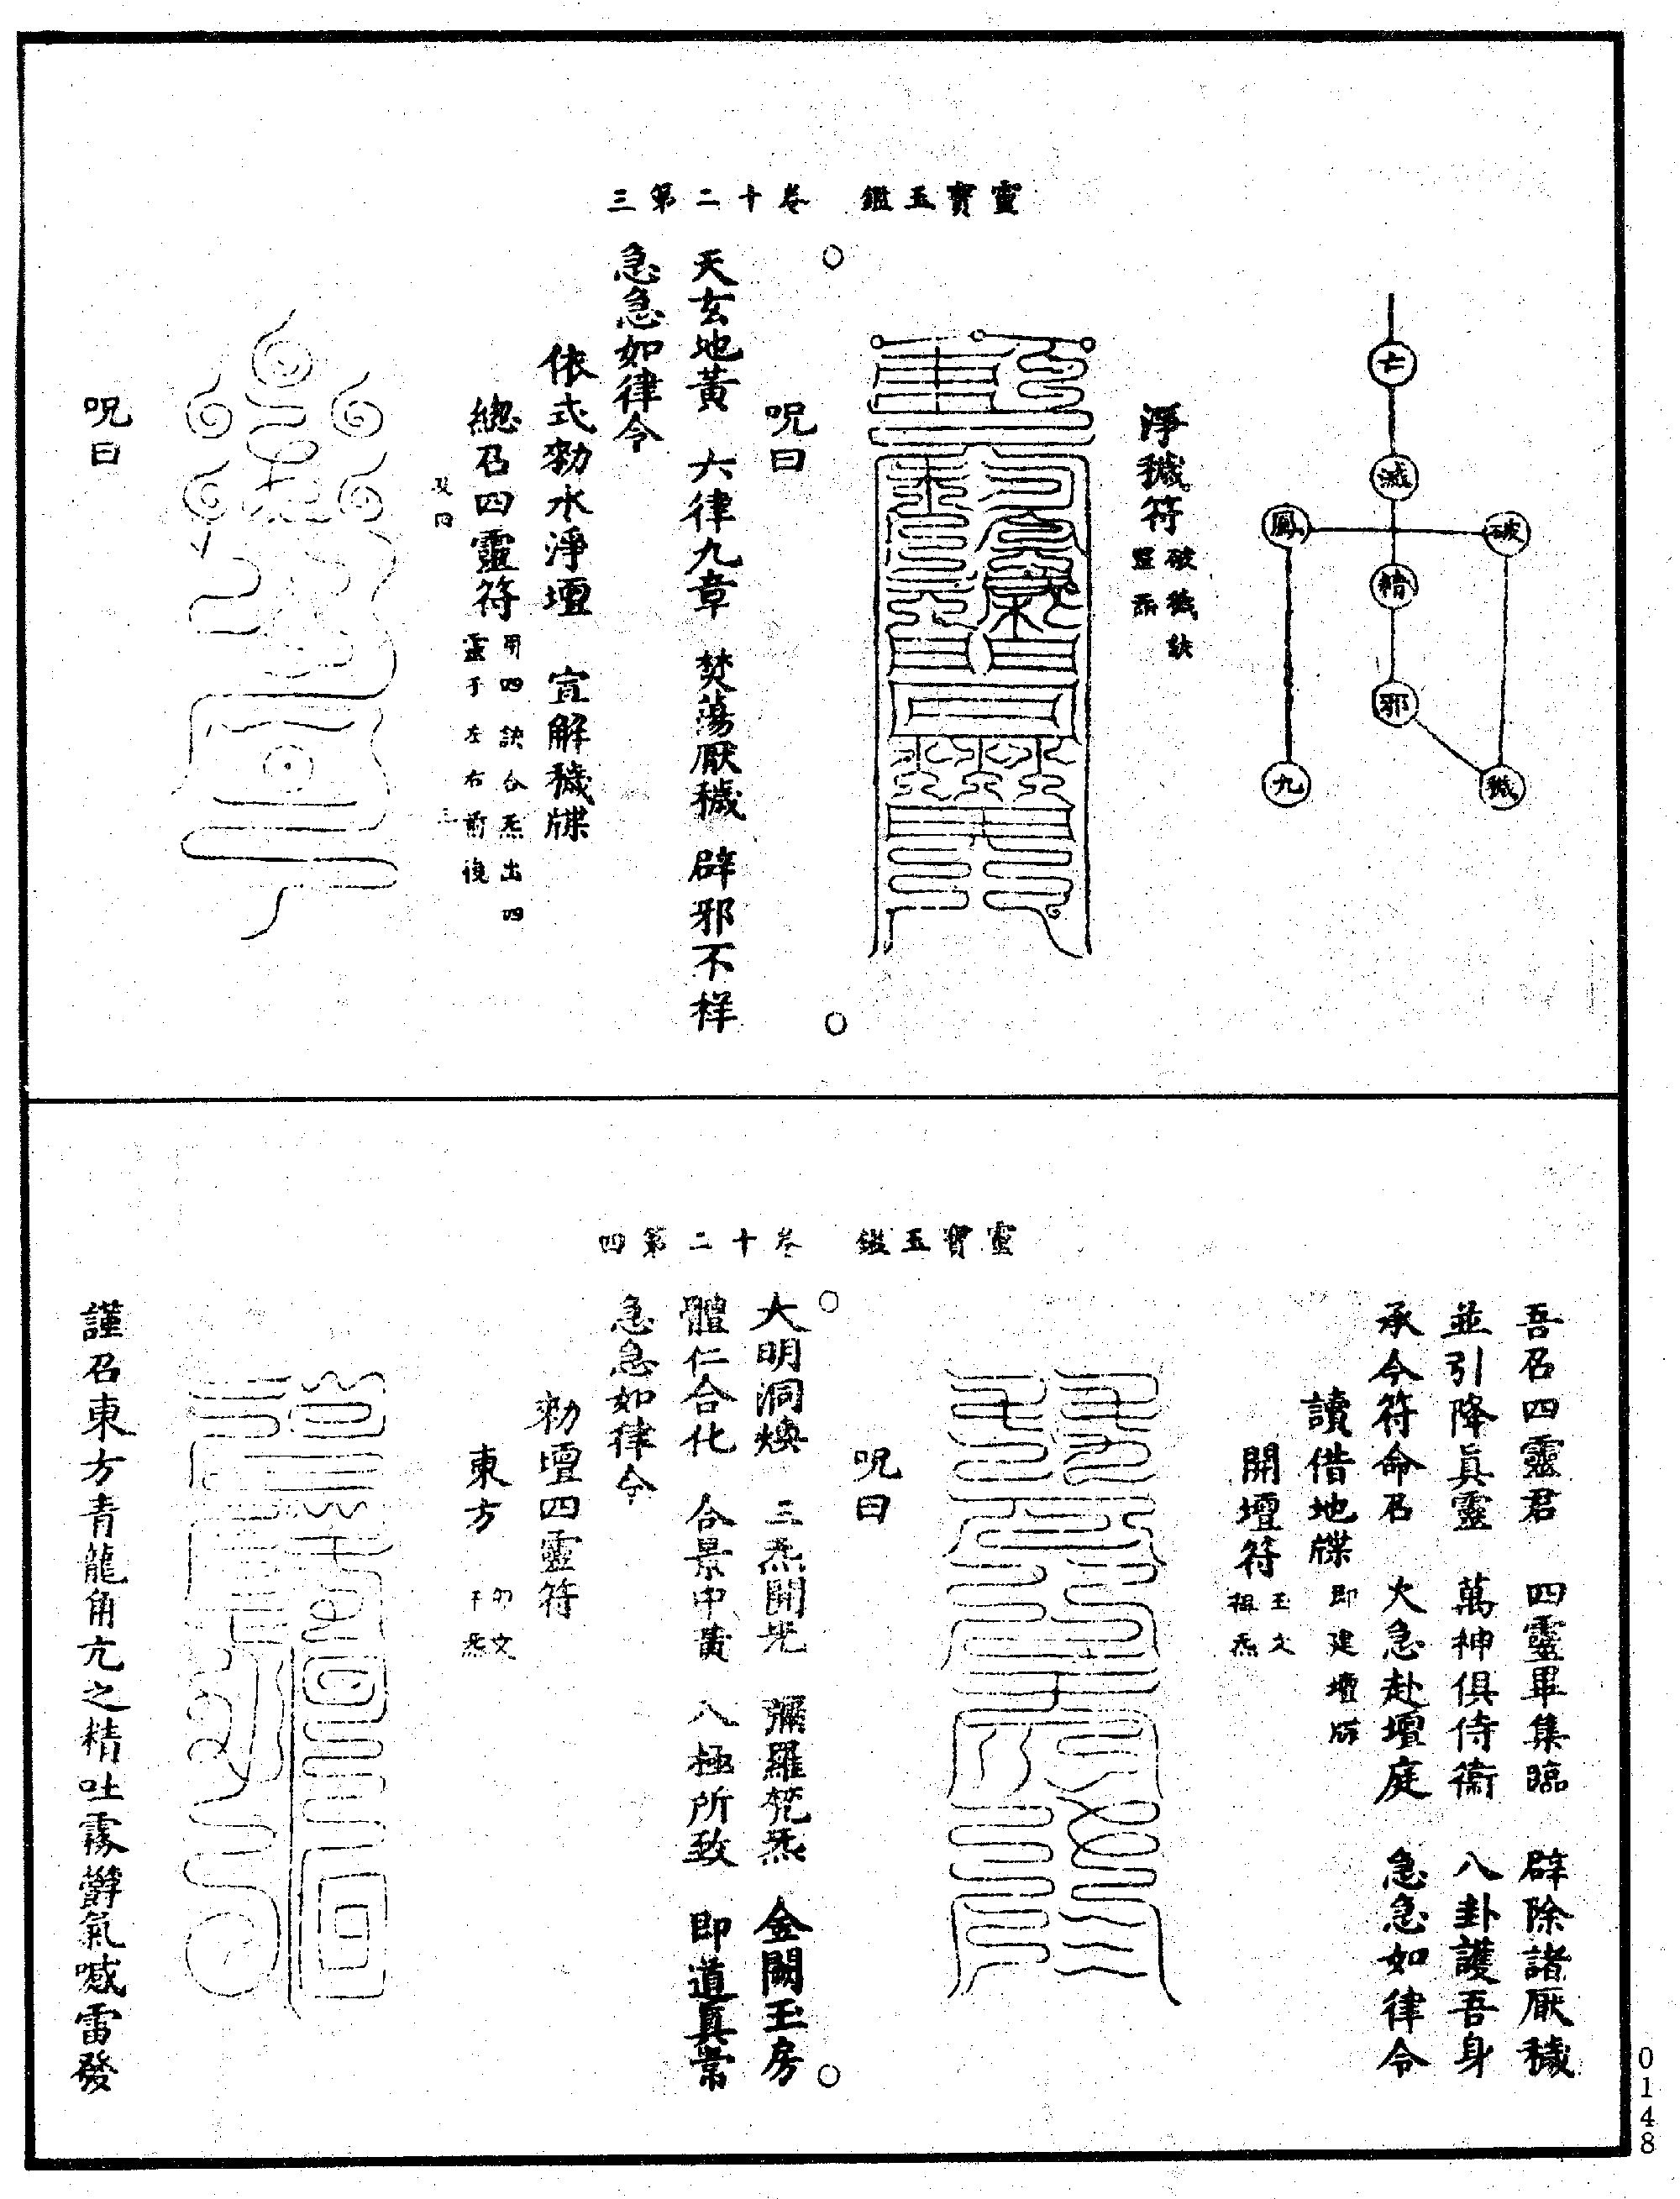 靈寶玉鑑　卷十二第三
亡
滅
鳳
破
精
邪
九
穢
淨穢符 破穢訣
罡炁
呪曰
天玄地黃　六律九章　焚蕩厭穢　辟邪不祥
急急如律令
依式勑水淨壇　宣解穢牒
總召四靈符 用四訣合炁出四
靈于左右前後
呪曰
靈寶玉鑑　卷十二第四
吾召四靈君　四靈畢集臨　辟除諸厭穢
並引降眞靈　萬神俱侍衞　八卦護吾身
承今符命召　火急赴壇庭　急急如律令
讀借地牒 即建壇牒
開壇符 玉文
祖炁
呪曰
大明洞煥　三炁開光　彌羅梵炁　金闕玉房
體仁合化　合景中黃　八極所致　即道眞常
急急如律令
勑壇四靈符
東方 卯文
千炁
謹召東方青龍角亢之精吐霧鬱氣喊雷發
0148